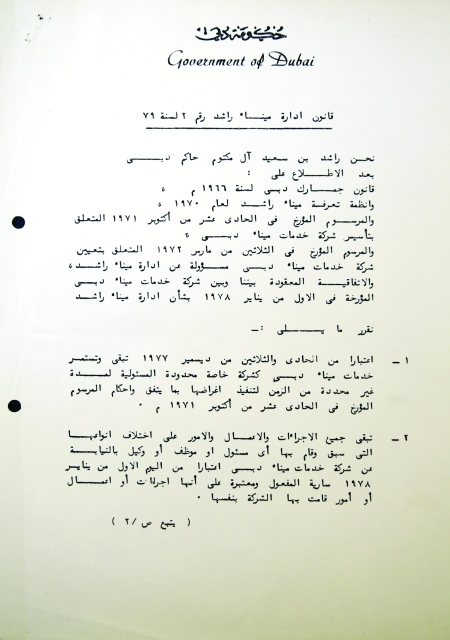 حكومة دبي
Government of Dubai
قانون ادارة مينــاء راشد رقم ٢ لسنة ٧٩
نحــن راشد بن سعيد آل مكتوم حاكم دبـــي
بعد الاطـــلاع على :
قانون جمـــارك دبـي لسنة ١٩٦٦ م ،
وانظمة تعرفــة ميناء راشــد لعام ١٩٧٠ ،
والمرســوم المؤرخ فى الحادى عشر من أكتوبر ١٩٧١ المتعلق
بتأسيس شركة خدمات مينـاء دبـــي ،
والمرسوم المؤرخ فى الثلاثين من مارس ١٩٧٢ المتعلق بتعيين
شركة خدمات مينـاء دبـي مسؤولة عن ادارة مينـاء راشــد ،
والاتفاقيــة المعقودة بيننا وبين شركة خدمات مينـاء دبــي
المؤرخة فى الاول من يناير ١٩٧٨ بشأن ادارة مينـاء راشــد
نقرر ما يـــلى :ـ
١ ـ اعتبارا من الحادى والثلاثين من ديسمبر ١٩٧٧ تبقى وتستمر
خدمات مينـاء دبـــي كشركة خاصة محدودة المسئولية لمــدة
غير محددة من الزمن لتنفيذ اغراضها بما يتفق واحكام المرسوم
المؤرخ فى الحادى عشر من أكتوبر ١٩٧١ م .
٢ ـ تبقى جميع الاجراءات والاعمـال والامور على اختلاف انواعهـا
التى سبق وقام بها أى مسئول او موظف أو وكيل بالنيابـة
عن شركة خدمات مينـاء دبــي اعتبارا من اليوم الاول من ينايـر
١٩٧٨ سارية المفعول ومعتبرة على أنها اجراءات أو اعمـال
أو أمور قامت بها الشركة بنفسها .
( يتبع ص /٢ )